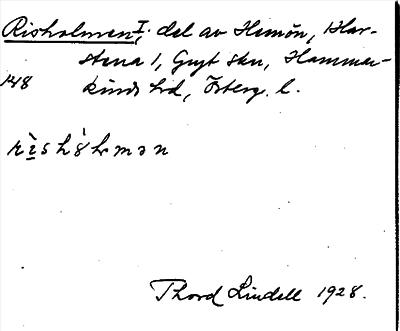 Risholmen I, del av Hemön, Har-
stena 1, Gryt skn, Hammar-
148 kinds hd, Österg. l.
Thord Lindell 1928.